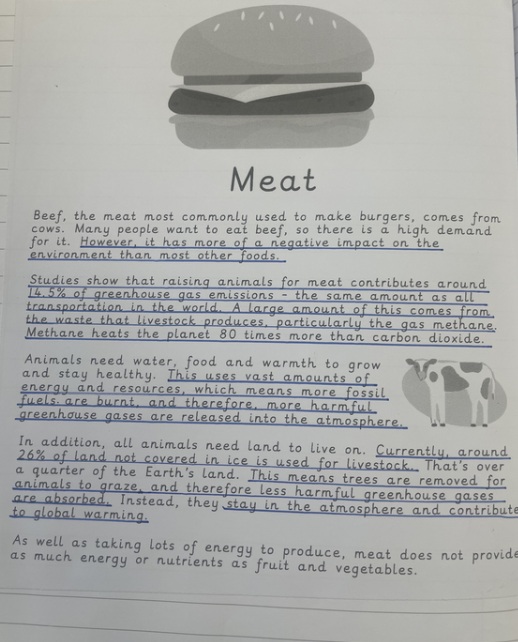 Meat
Beef, the meat most commonly used to make burgers, comes from
cows. Many people want to eat beef, so there is a high demand
for it. However, it has more of a negative impact on the
environment than most other foods.
Studies show that raising animals for meat contributes around
14.5% of greenhouse gas emissions - the same amount as all
transportation in the world. A large amount of this comes from
the waste that livestock produces, particularly the gas methane.
Methane heats the planet 80 times more than carbon dioxide.
Animals need water, food and warmth to grow
and stay healthy. This uses vast amounts of
energy and resources, which means more fossil
fuels are burnt, and therefore, more harmful
greenhouse gases are released into the atmosphere.
In addition, all animals need land to live on. Currently, around
26% of land not covered in ice is used for livestock. That's over
a quarter of the Earth's land. This means trees are removed for
animals to graze, and therefore less harmful greenhouse gases
are absorbed. Instead, they stay in the atmosphere and contribute
to global warming.
As well as taking lots of energy to produce, meat does not provide
as much energy or nutrients as fruit and vegetables.